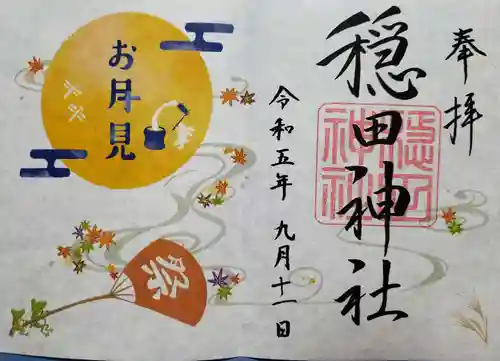 奉拝
穏田神社
穏田神社
令和五年 九月十一日
お月見
祭